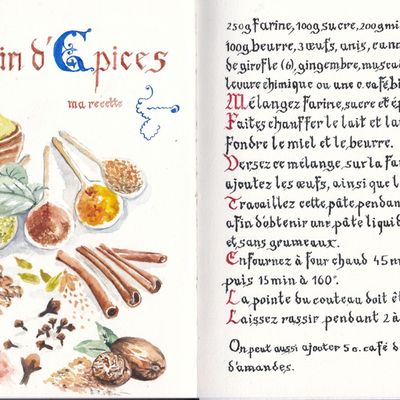 in d'Epices
ma recette
250g Farine, 100g sucre, 200g mi
100g beurre, 3 œufs, anis, cann
de girofle (6), gingembre, muscad
levure chimique ou une c. café, bi
Mélangez farine, sucre et ép
Faites chauffer le lait et la
fondre le miel et le beurre.
Versez ce mélange, sur la fa
ajoutez les œufs, ainsi que l
Travaillez cette, pâte, pendan
afin d'obtenir une, pâte liquid
et sans grumeaux.
Enfournez à four chaud 45 m
puis 15 min à 160°.
La pointe du couteau doit êt
Laissez rassir pendant 2 à
On peut aussi ajouter 5 c. café d
d'amandes.